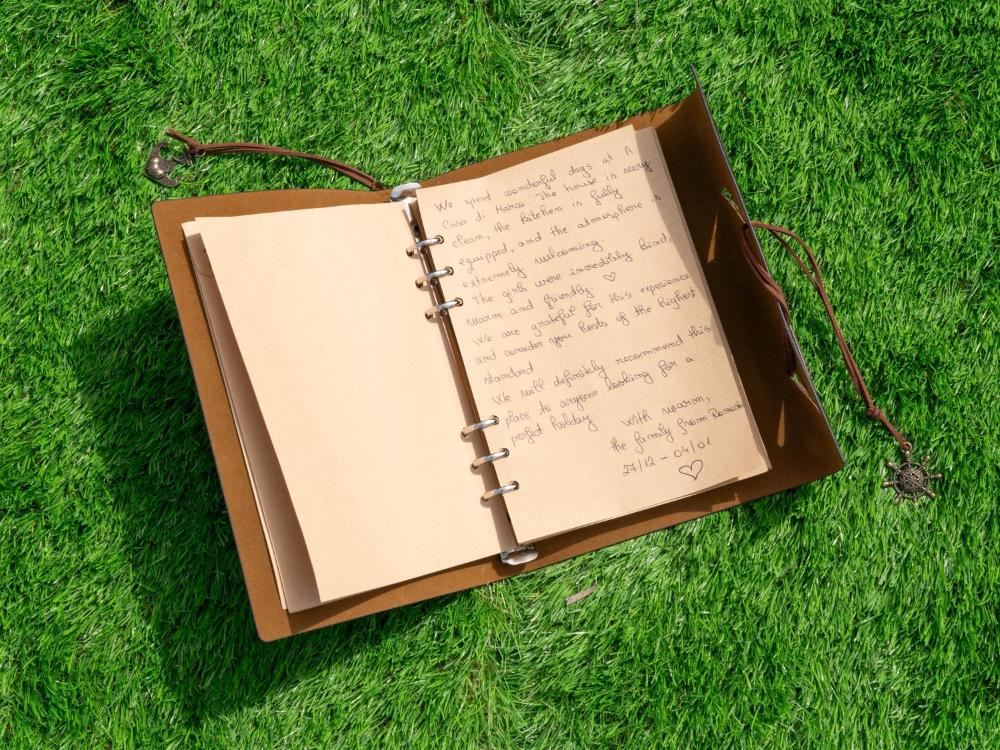 We spent wonderful days at A
Casa di Marco. The house is very
clean, the kitchen is fully
equipped, and the atmosphere is
extremely welcoming.
The girls were incredibly kind,
warm and friendly. ♡
We are grateful for this experience
and consider you hosts of the highest
standard
We will definitely recommend this
place to anyone looking for a
perfect holiday.
With warm,
the family from
27/12 - 04/01
♡